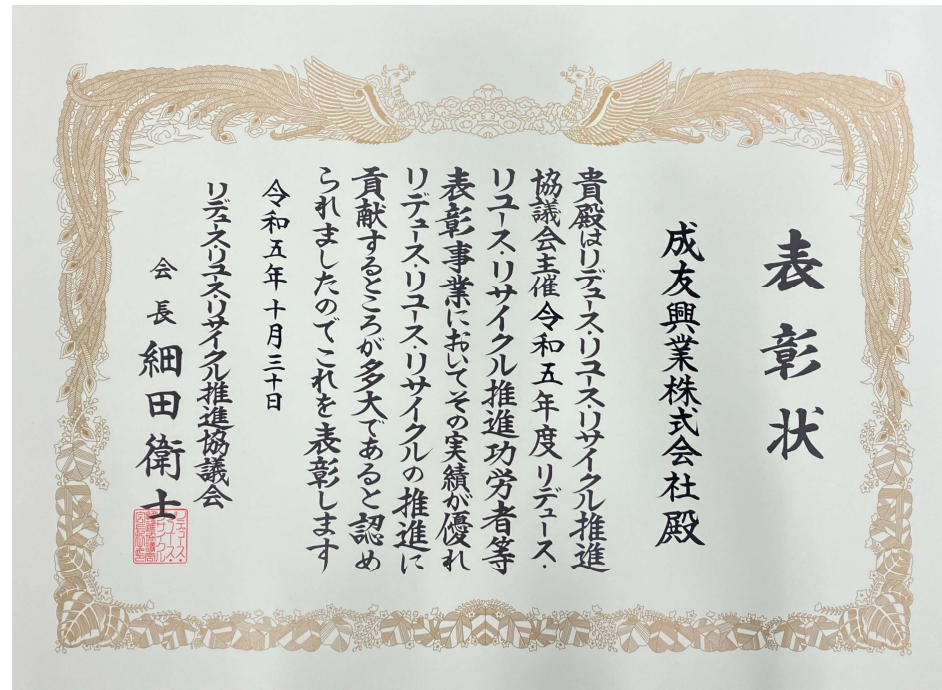 表彰状
成友興業株式会社殿
貴殿はリデュース・リユース・リサイクル推進
協議会主催令和五年度リデュース・
リユース・リサイクル推進功労者等
表彰事業においてその実績が優れ
リデュース・リユース・リサイクルの推進に
貢献するところが多大であると認め
られましたのでこれを表彰します
令和五年十月三十日
リデュース・リユース・リサイクル推進協議会
会長 細田衛士